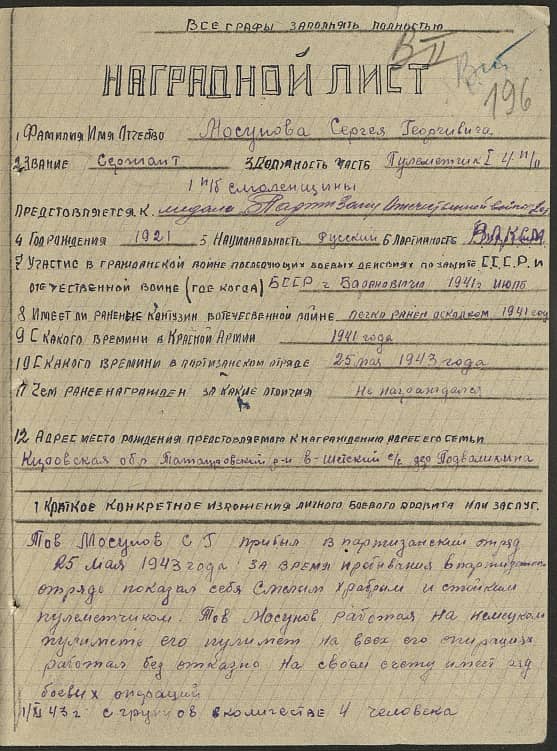 ВСЕ ГРАФЫ ЗАПОЛНЯТЬ ПОЛНОСТЬЮ
В II
196
НАГРАДНОЙ ЛИСТ
1 ФАМИЛИЯ ИМЯ ОТЧЕСТВО Мосунова Сергея Георгивича
2 ЗВАНИЕ Сержант 3 ДОЛЖНОСТЬ ЧАСТЬ Пулеметчик I 4 п/о
1 п/б смоленщины
ПРЕДСТОВЛЯЕТСЯ К медали Партизану Отечественной войны
4 ГОД РОЖДЕНИЯ 1921 5 НАЦИОНАЛЬНОСТЬ Русский 6 ПАРТИЙНОСТЬ ВЛКСМ
7 УЧАСТИЕ В ГРАЖДАНСКОЙ ВОЙНЕ ПОСЛЕДУЮЩИХ БОЕВЫХ ДЕЙСТВИЯХ ПО ЗАЩИТЕ СССР И
ОТЕЧЕСТВЕННОЙ ВОЙНЕ (ГДЕ КОГДА) БССР г Барановичи 1941г июль
8 ИМЕЕТ ЛИ РАНЕНЬЯ КАНТУЗИИ В ОТЕЧЕСТВЕННОЙ ВОЙНЕ легко ранен осколком 1941 год
9 С КАКОГО ВРЕМИНИ В КРАСНОЙ АРМИИ 1941 года
10 С КАКОГО ВРЕМИНИ В ПАРТИЗАНСКОМ ОТРЯДЕ 25 мая 1943 года
11 ЧЕМ РАНЕЕ НАГРАЖДЕН ЗА КАКИЕ ОТЛИЧИЯ Не награждался
12 АДРЕС МЕСТО РОЖДЕНИЯ ПРЕДСТОВЛЯЕМОГО К НАГРАЖДЕНИЮ АДРЕС ЕГО СЕМЬИ
Кировская обл р-н с/с дер
1 КРАТКОЕ КОНКРЕТНОЕ ИЗЛОЖЕНИЯ ЛИЧНОГО БОЕВОГО ПОДВИГА ИЛИ ЗАСЛУГ.
Тов Мосунов С Г прибыл в партизанский отряд
25 мая 1943 года за время пребивания в партизанском
отряде показал себя смелым храбрым и стойким
пулеметчиком. Тов Мосунов работая на немецком
пулимете его пулимет на всех его операциях
работал без отказно на своем счету имеет ряд
боевых операций
1/XI 43г с группов в количестве 4 человека